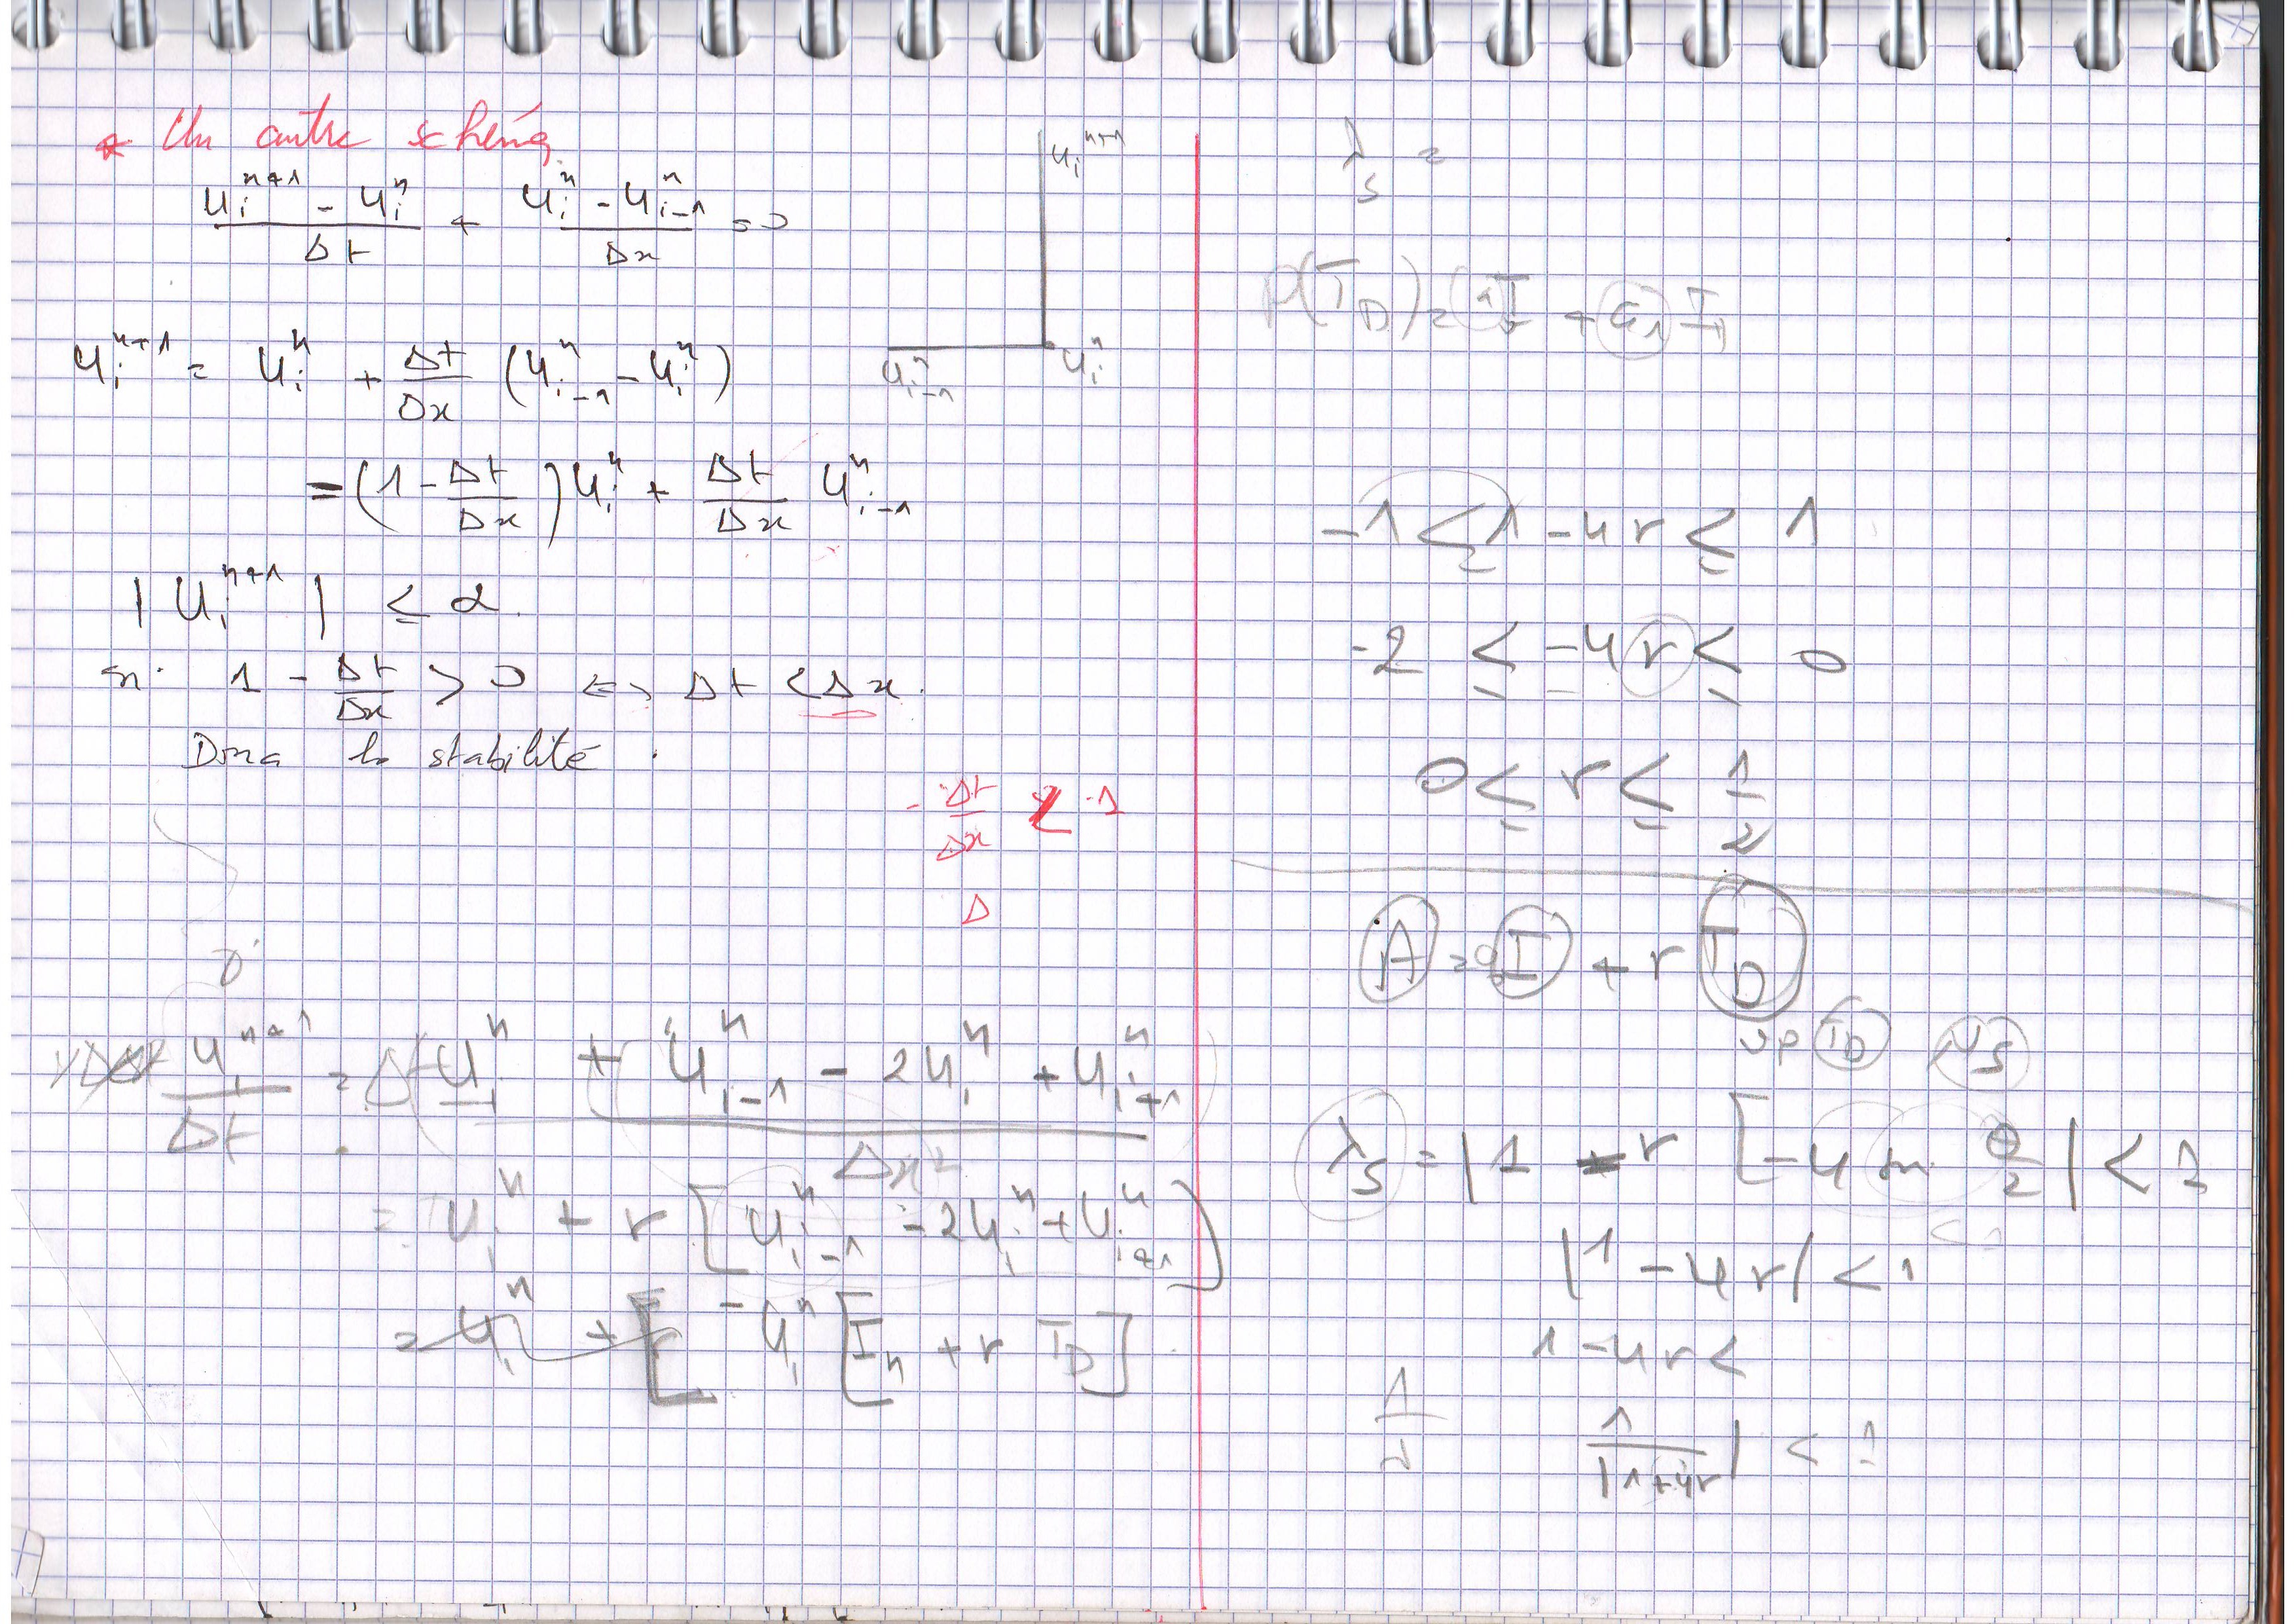 * Un autre schéma
(u_i^{n+1} - u_i^n)/Δt + (u_i^n - u_{i-1}^n)/Δx = 0
u_i^{n+1} = u_i^n + Δt/Δx (u_{i-1}^n - u_i^n)
= (1 - Δt/Δx) u_i^n + Δt/Δx u_{i-1}^n
|u_i^{n+1}| ≤ α.
si 1 - Δt/Δx > 0 <=> Δt < Δx.
Donc la stabilité.
- Δt/Δx < -1
Δ
u_i^{n+1}
u_{i-1}^n u_i^n
u_i^{n+1}/Δt = Δt (u_i^n + (u_{i-1}^n - 2u_i^n + u_{i+1}^n)/Δx²)
= u_i^n + r [u_{i-1}^n - 2u_i^n + u_{i+1}^n]
u_i^n [I_n + r T_D]
λ_s =
P(T_D) =
-1 ≤ 1 - 4r ≤ 1
-2 ≤ -4r ≤ 0
0 ≤ r ≤ 1/2
A = a_0 I + r T_D
vp T_D μ_s
λ_s = |1 - r [-4 sin θ/2| < 1
|1 - 4r| < 1
1 - 4r <
1/|1+4r| < 1